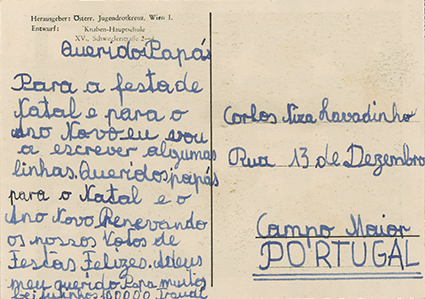 Herausgeber: Österr. Jugendrotkreuz, Wien I.
Entwurf: Knaben-Hauptschule
XV., Schweglerstraße
Queridos Papás
Para a festa de
Natal e para o
Ano Novo eu vou
a escrever algumas
linhas. Queridos papás
para o Natal e o
Ano Novo Renovando
os nossos Votos de
Festas Felizes. Adeus
meu querido Papa muitos
beijinhos 100000
Carlos Niza Lavadinho
Rua 13 de Dezembro
Campo Maior
PORTUGAL